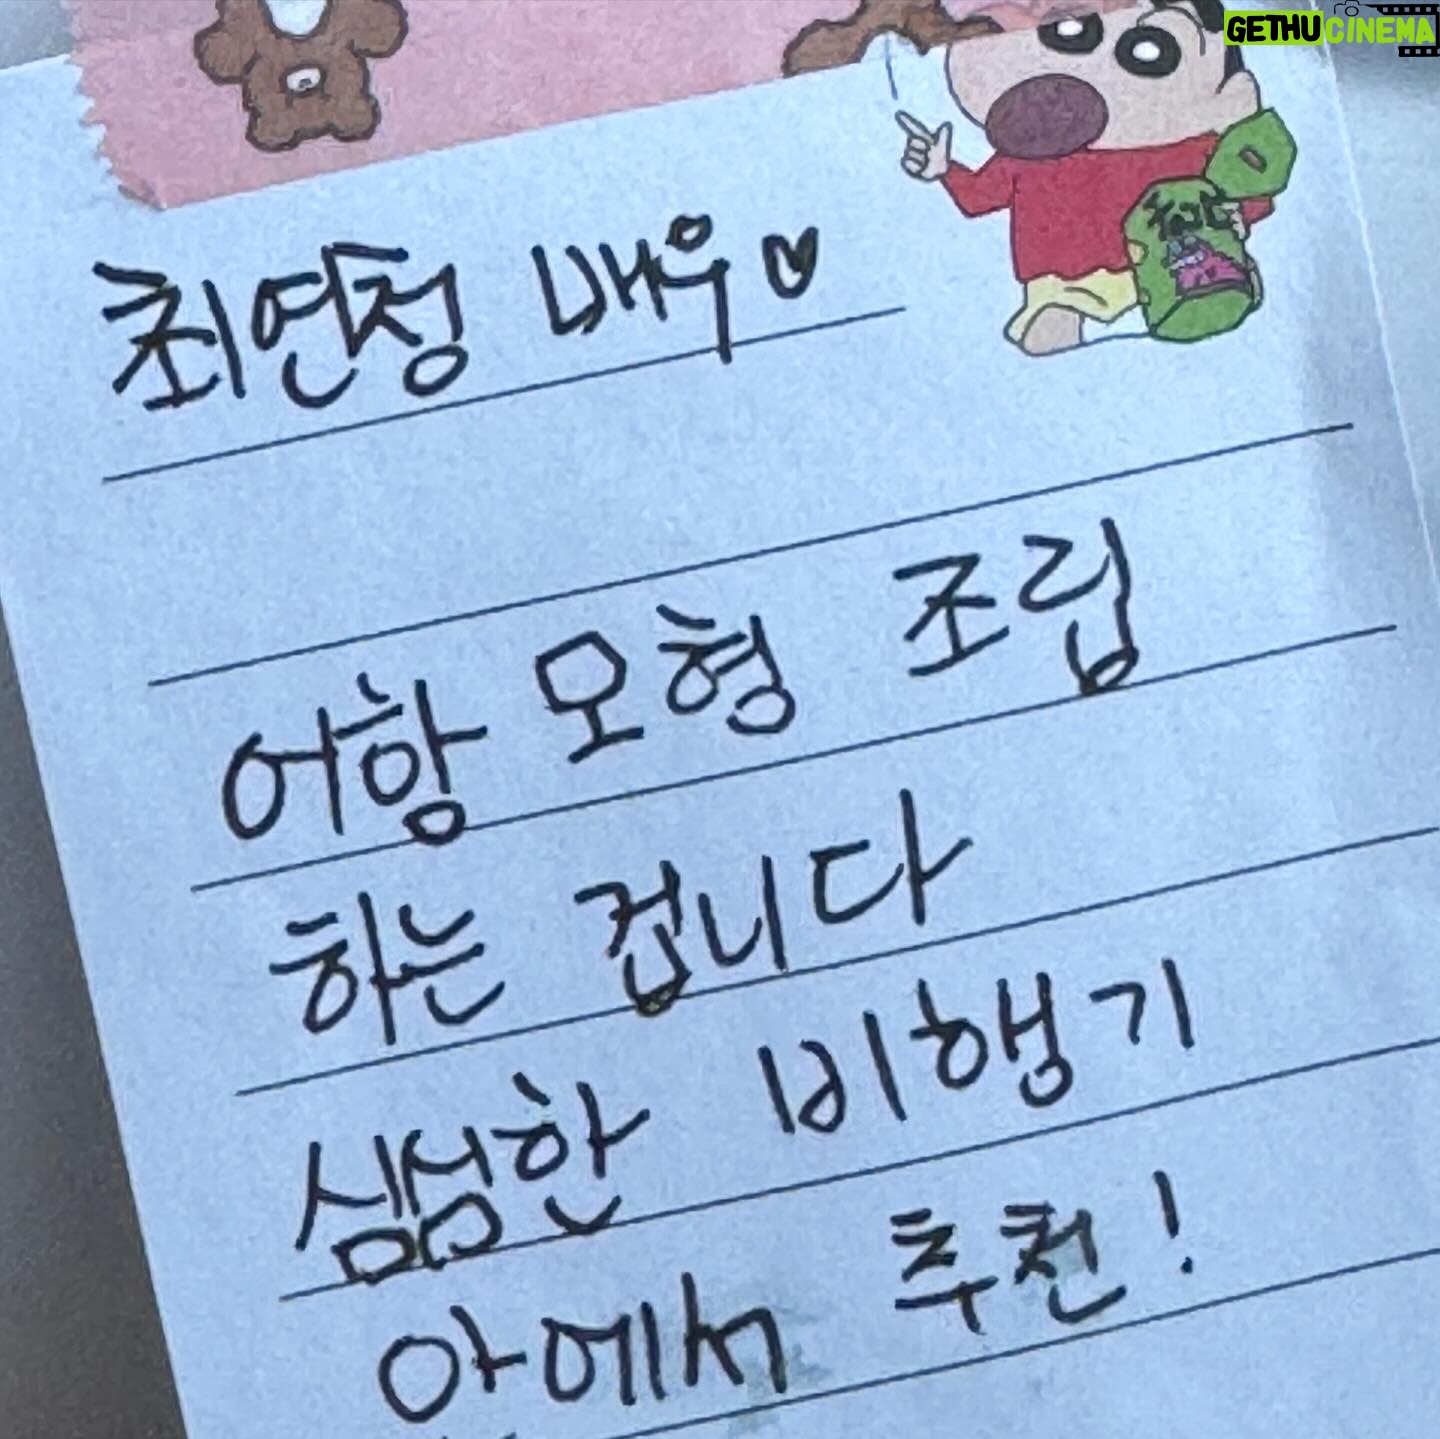 GETHUCINEMA
최연정 배우♡
어항 모형 조립
하는 겁니다
심심한 비행기
안에서 추천!